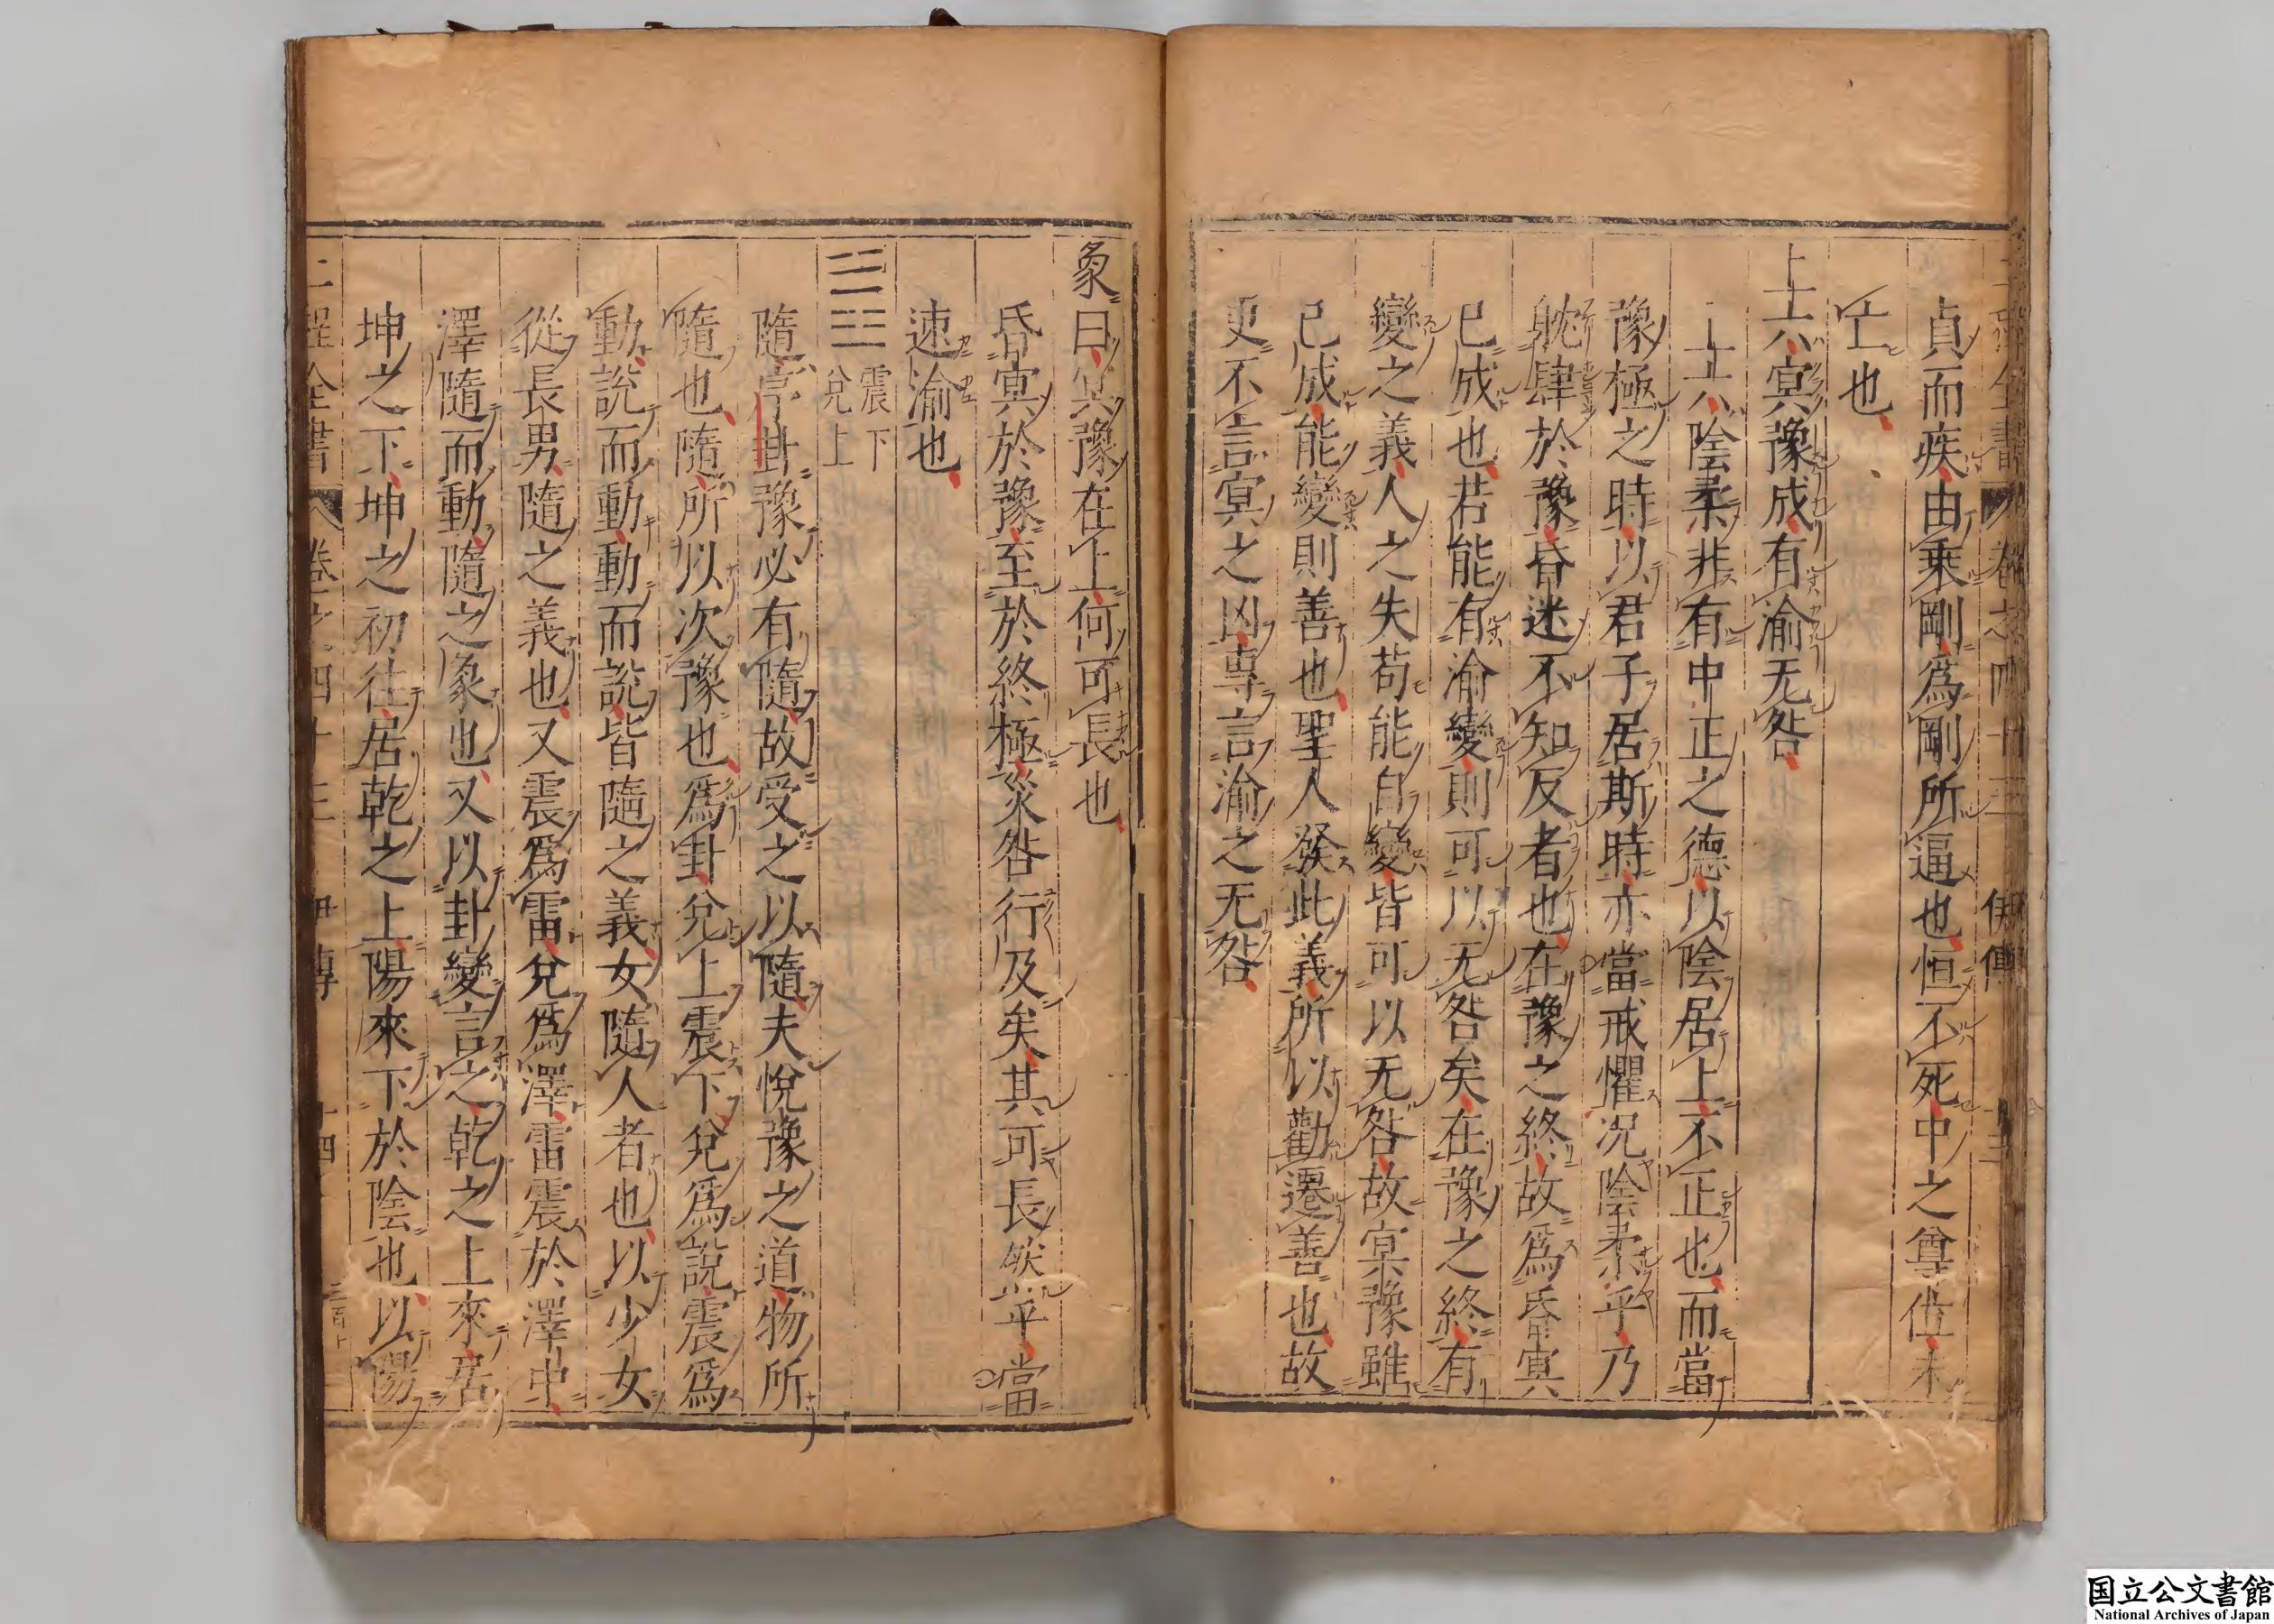 貞而疾由乗剛為剛所逼也恒不死中之尊位未
亡也
上六冥豫成有渝无咎
上六陰柔非有中正之德以陰居上不正也而當
豫極之時以君子居斯時亦當戒懼况陰柔乎乃
躭肆於豫昏迷不知反者也在豫之終故為昏冥
已成也若能有渝變則可以无咎矣在豫之終有
變之義人之失苟能自變皆可以无咎故冥豫雖
已成能變則善也聖人發此義所以勸遷善也故
更不言冥之凶専言渝之无咎
象曰冥豫在上何可長也
昏冥於豫至於終極災咎行及矣其可長然乎當
速渝也
震下
兌上
隨序卦豫必有隨故受之以隨夫悅豫之道物所
隨也隨所以次豫也為卦兌上震下兌為說震為
動說而動動而說皆隨之義女隨人者也以少女
從長男隨之義也又震為雷兌為澤雷震於澤中
澤隨而動隨之象也又以卦變言之乾之上來居
坤之下坤之初往居乾之上陽來下於陰也以陽
二程全書 卷之四十三 伊傳 十四
国立公文書館
National Archives of Japan